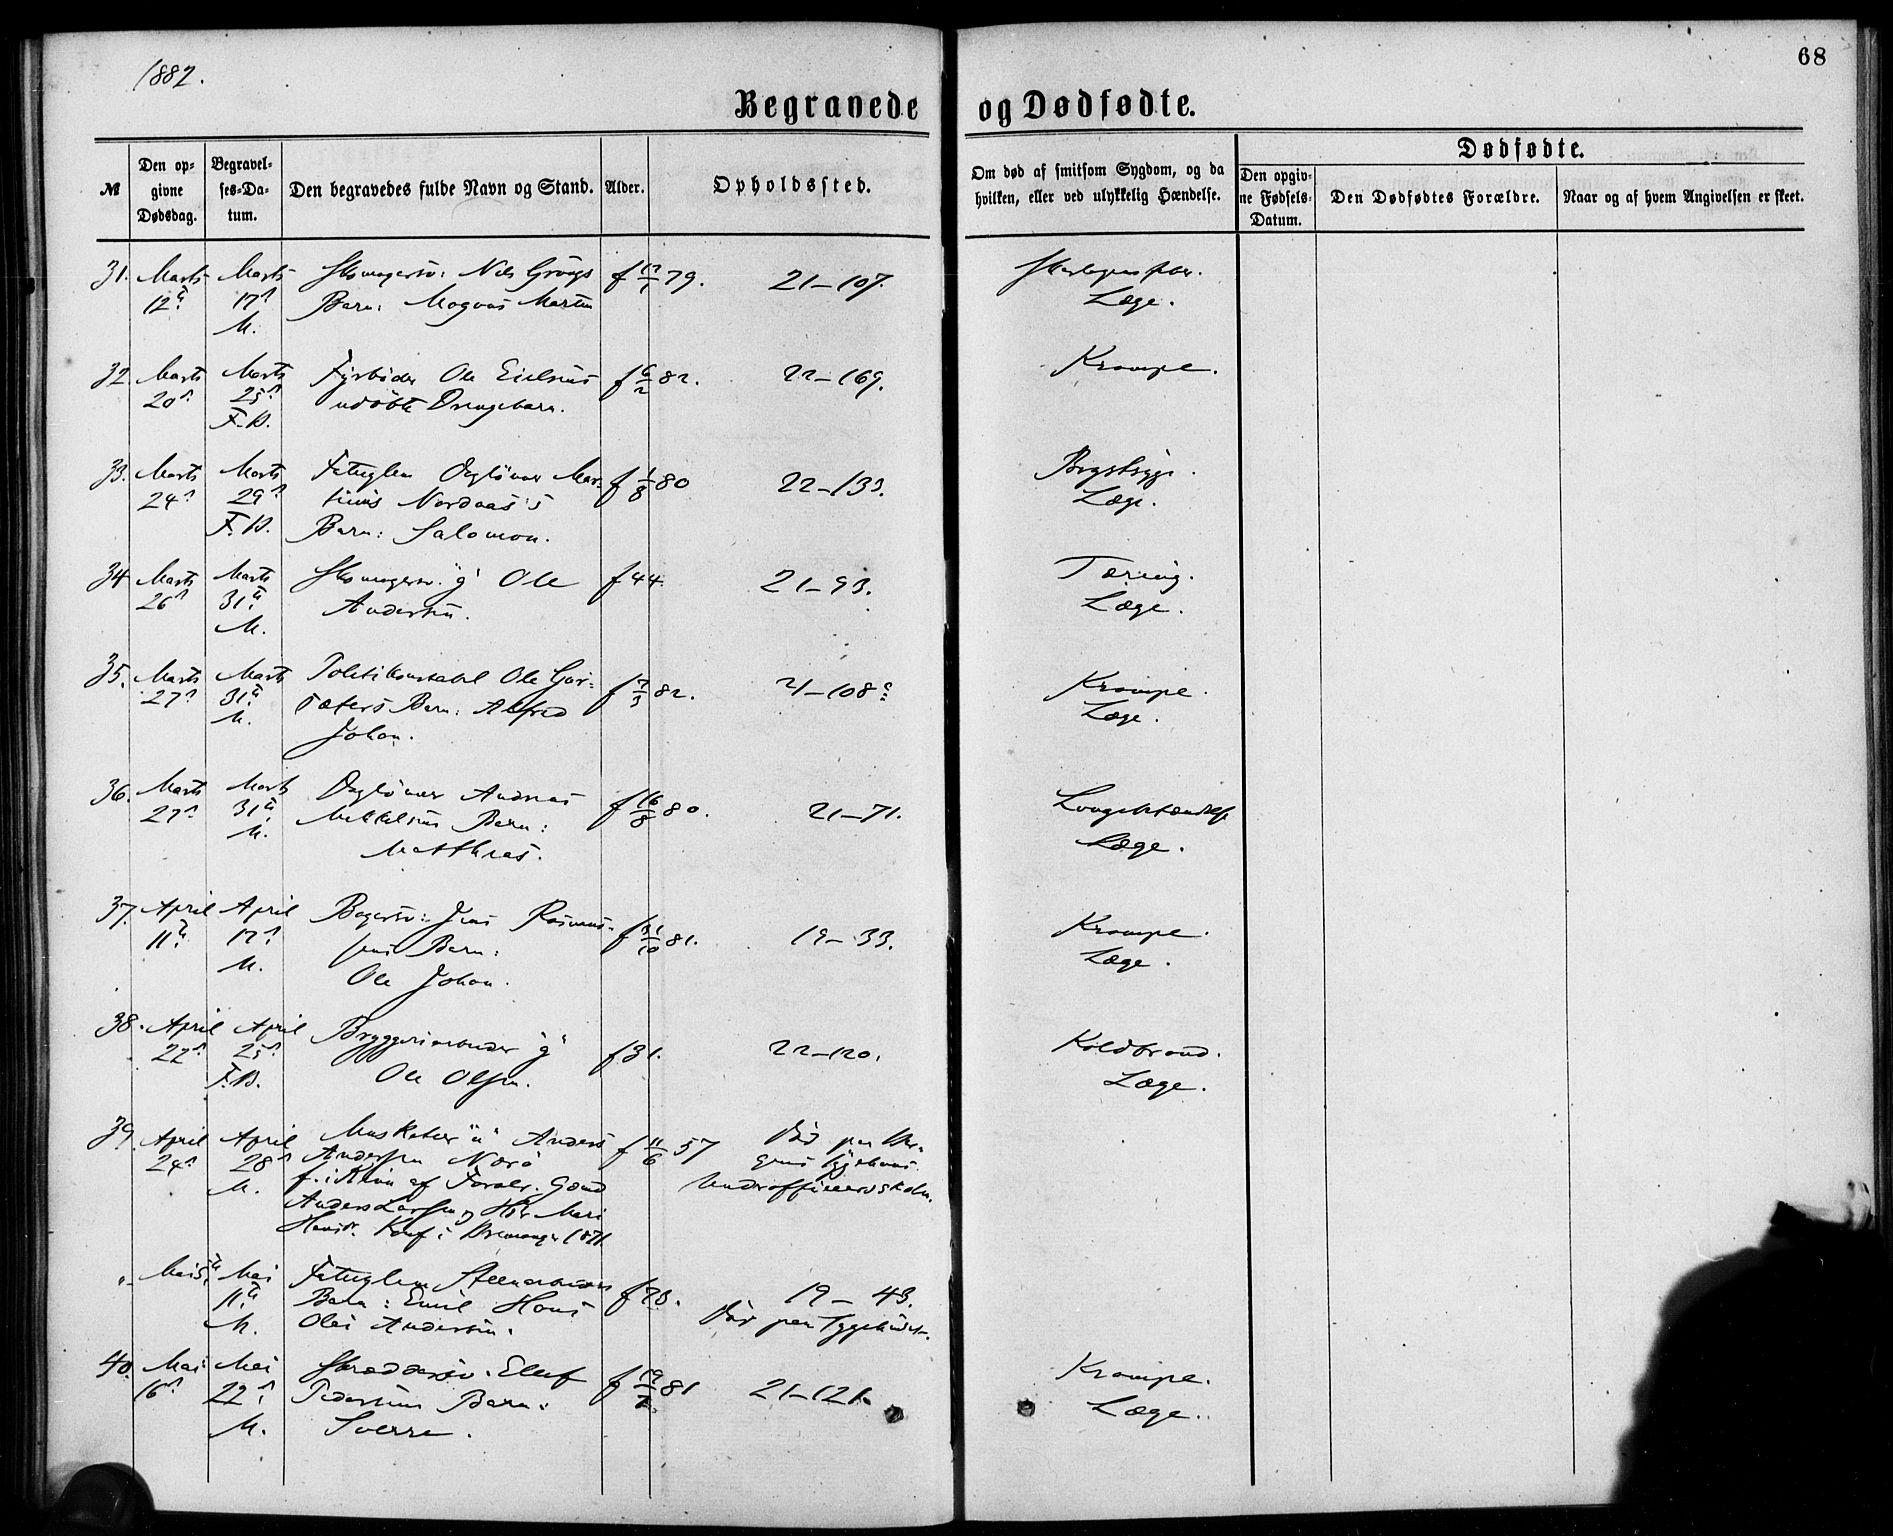 1882.
68
Begravede og Dødfødte.
№
Den op-
givne
Dødsdag.
Begravel-
ses-Da-
tum.
Den begravedes fulde Navn og Stand.
Alder.
Opholdssted.
Om død af smitsom Sygdom, og da
hvilken, eller ved ulykkelig Hændelse.
Dødfødte.
Den opgiv-
ne Fødsels-
Datum.
Den Dødfødtes Forældre.
Naar og af hvem Angivelsen er skeet.
31. Marts Marts Skomagersv: Nils f 17/1 79. 21-107.
12te 17de Barn: Magnus Martin Læge.
M.
32 Marts Marts Fyrbøder Ole f 6/2 82. 22-169. Krampe.
20de 25de udøbte Drengebarn.
F. B.
33. Marts Marts Fattiglem Dagløner Mar- f 1/8 80 22-133. Brystsyge.
24de 29de tinus Nordaas's Læge.
F. B. Barn: Salomon.
34 Marts Marts Skomagersv. "g" Ole f 44. 21-93. Tæring.
26de 31te Andersen. Læge.
M.
35. Marts Marts Politikonstabel Ole f 7/3 82. 21-108 Krampe.
27de 31te Barn: Alfred Læge.
M. Johan.
36. Marts Marts Dagløner Andreas f 16/8 80. 21-71.
27de 31te Mikkelsens Barn: Læge.
M. Matthias.
37. April April Bagersv: Jens Rasmus- f 31/10 81. 19-33. Krampe.
11te 17de sens Barn: Læge.
M. Ole Johan.
38. April April Bryggeriarbeider "g" f 31. 22-120. Koldbrand.
22de 25de Ole Olsen. Læge.
F. B.
39. April April Musketeer "u" Anders f 11/6 57 Død paa Ber-
24de 28de Andersen gens Sygehuus.
M. f. i Kinn af Forældr. Gmd Underofficeerskolen.
Anders Larsen og Hst. Mari
Hansdr. Konf. i Bremanger 1871
" Mai 5te Mai Fattiglem
11te Barn: Emil Hans f 78. 19-43.
M. Olai Andersen. Død paa Sygehuset.
40. Mai Mai Skræddersv. Eluf f 19/2 81 21-121. Krampe.
16de 22de Pedersens Barn: Læge.
M. Sverre.